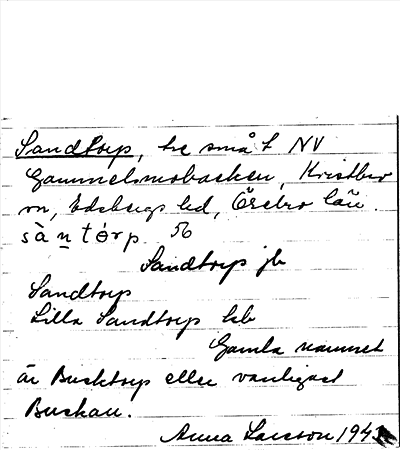 Sandtorp, tre små t NV
Gammelsmobacken, Kristber
sn, Edsbergs hd, Örebro län.
sàṇtórp. 56
Sandtorp jb
Sandtorp
Lilla Sandtorp kb
Gamla namnet
är Bucktorp eller vanligast
Buckau.
Anna Larsson 1943